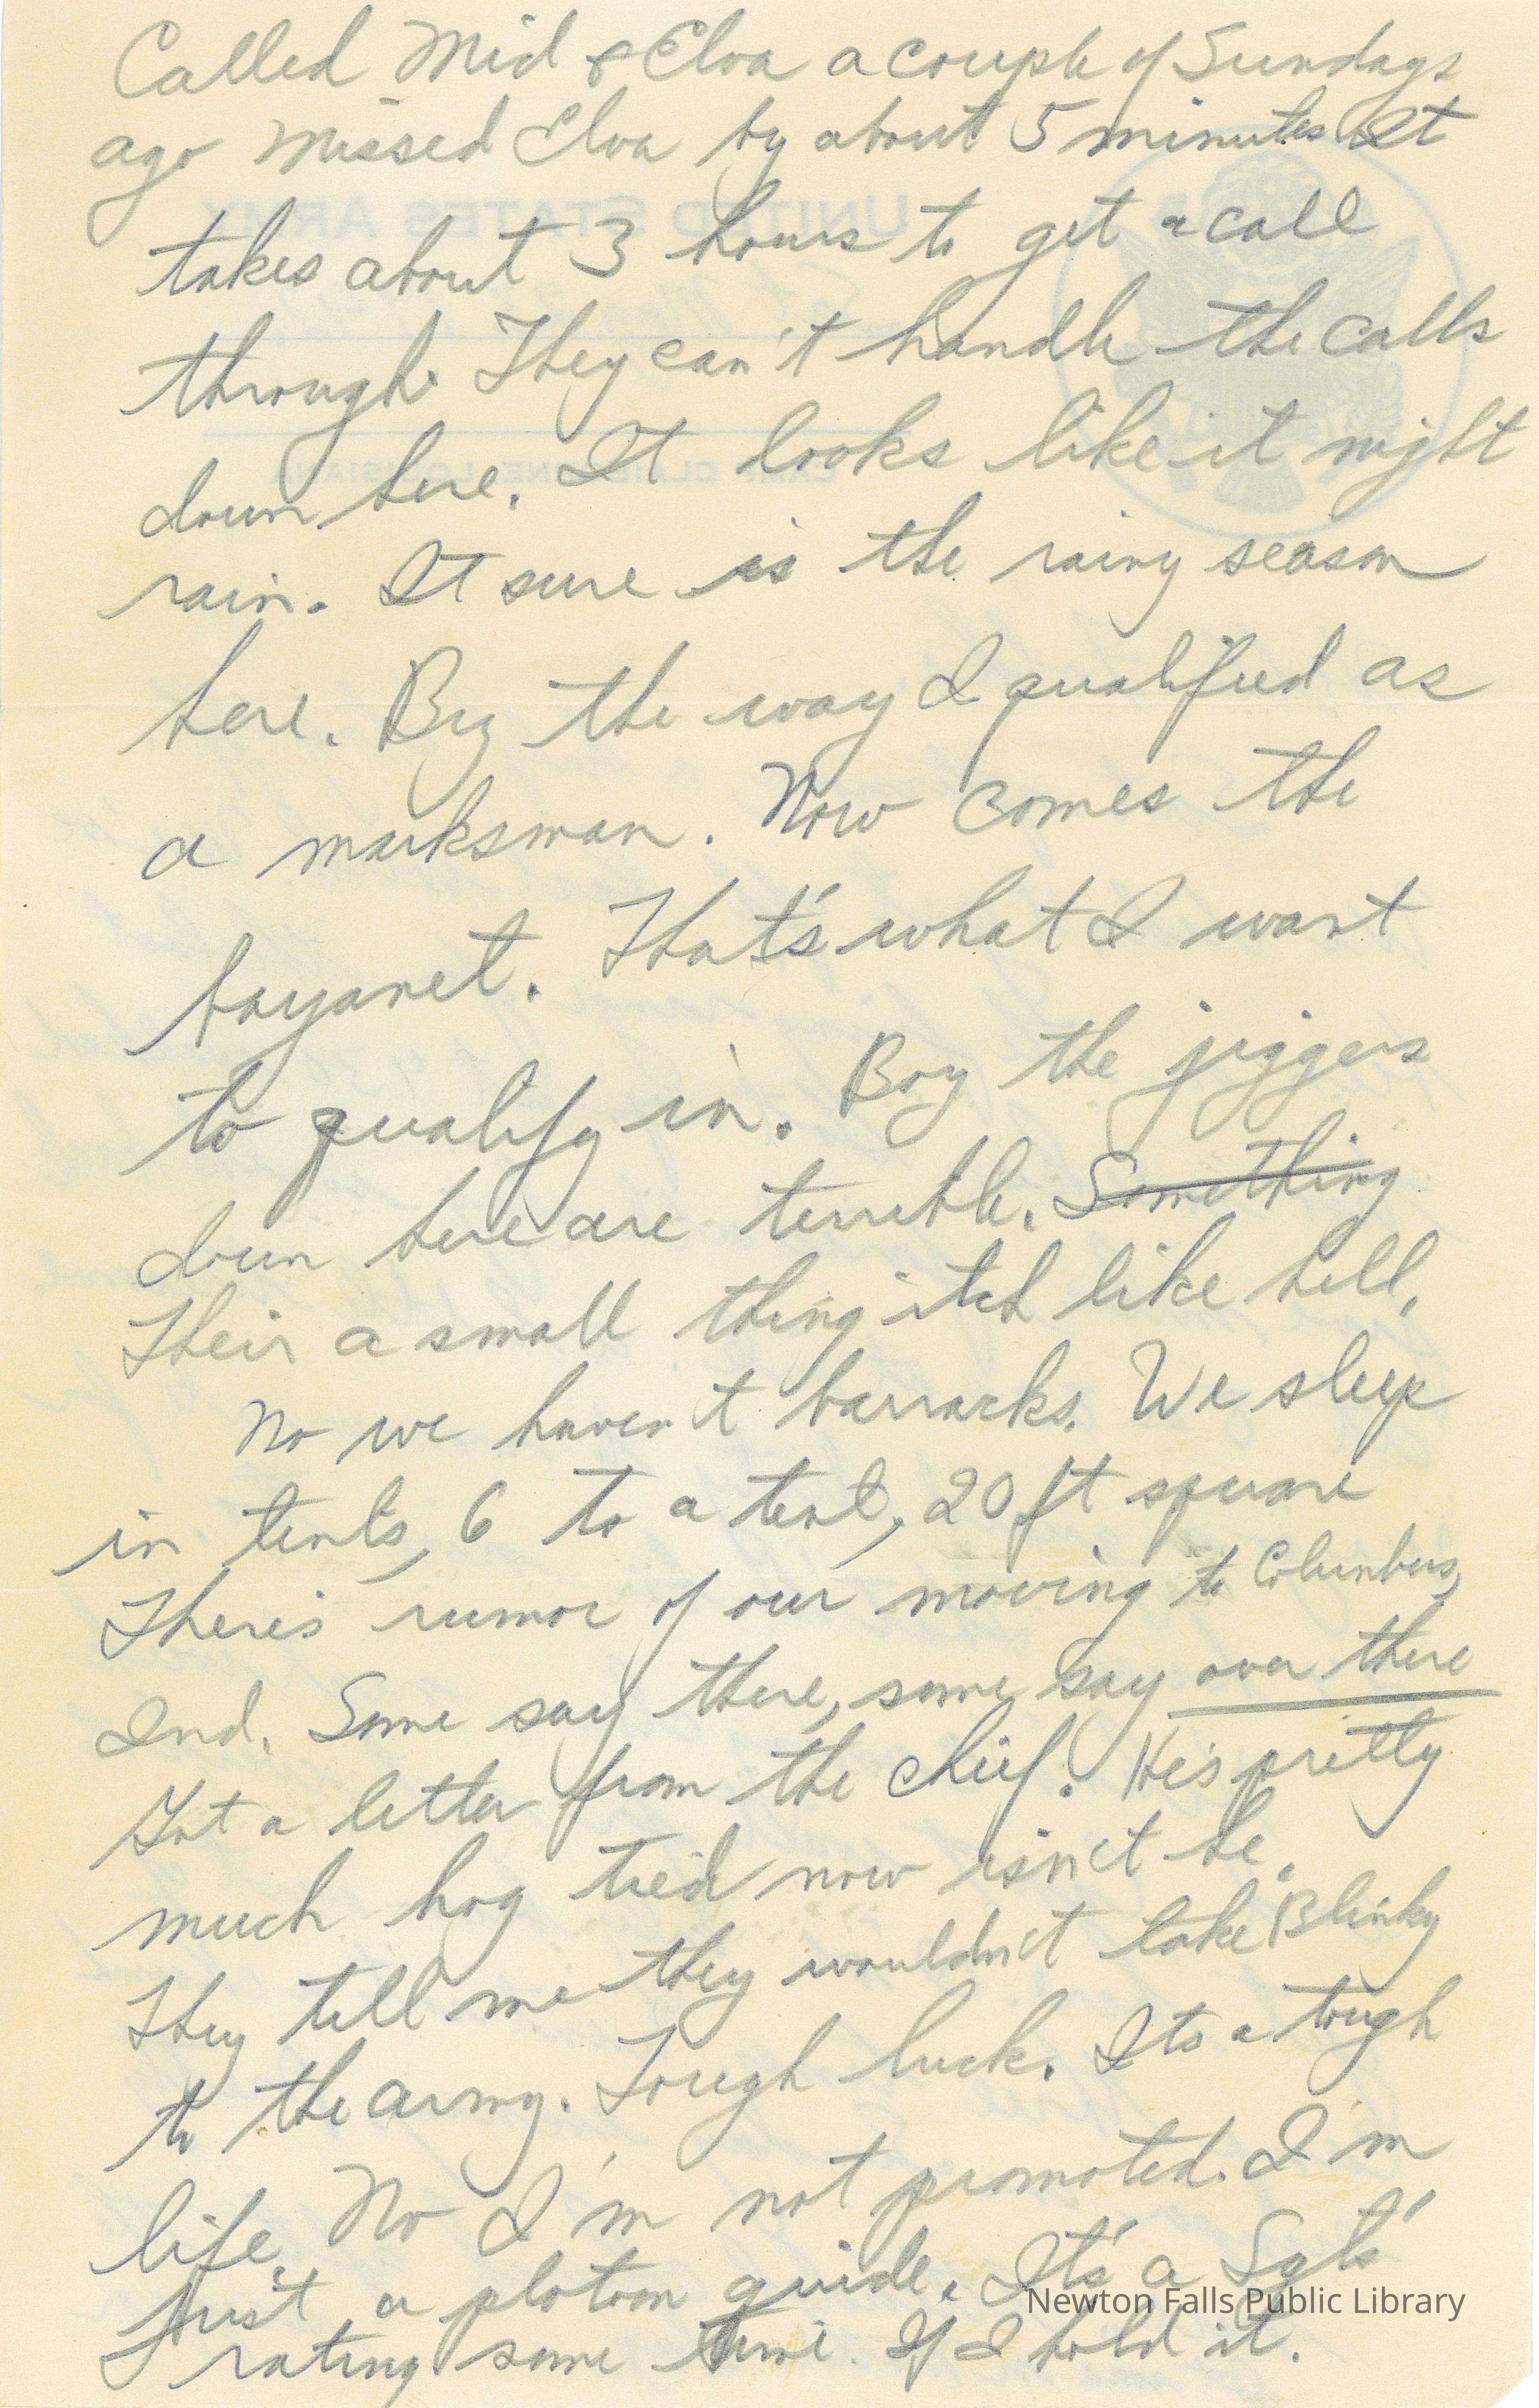 Called Mid & Elva a couple of Sundays
ago missed Elva by about 5 minutes It
takes about 3 hours to get a call
through. They can't handle the calls
down here. It looks like it might
rain. It sure is the rainy season
here. By the way I qualified as
a marksman. Now comes the
bayanet. That's what I want
to qualify in. Boy the jiggers
down here are terrible. Something
Their a small thing itch like hell.
No we haven't barracks. We sleep
in tents, 6 to a tent, 20 ft square
There's rumor of our moving to Columbus,
Ind. Some say there, some say over there
Got a letter from the chief. He's pretty
much hog tied now isn't he.
They tell me they wouldn't take Blinky
to the army. Tough luck. Its a tough
life. No I'm not promoted. I'm
just a platoon guide. It's a Sgts'
rating some time. If I hold it.
UNITED STATES ARMY
CAMP CLAIBORNE LOUISIANA
Newton Falls Public Library